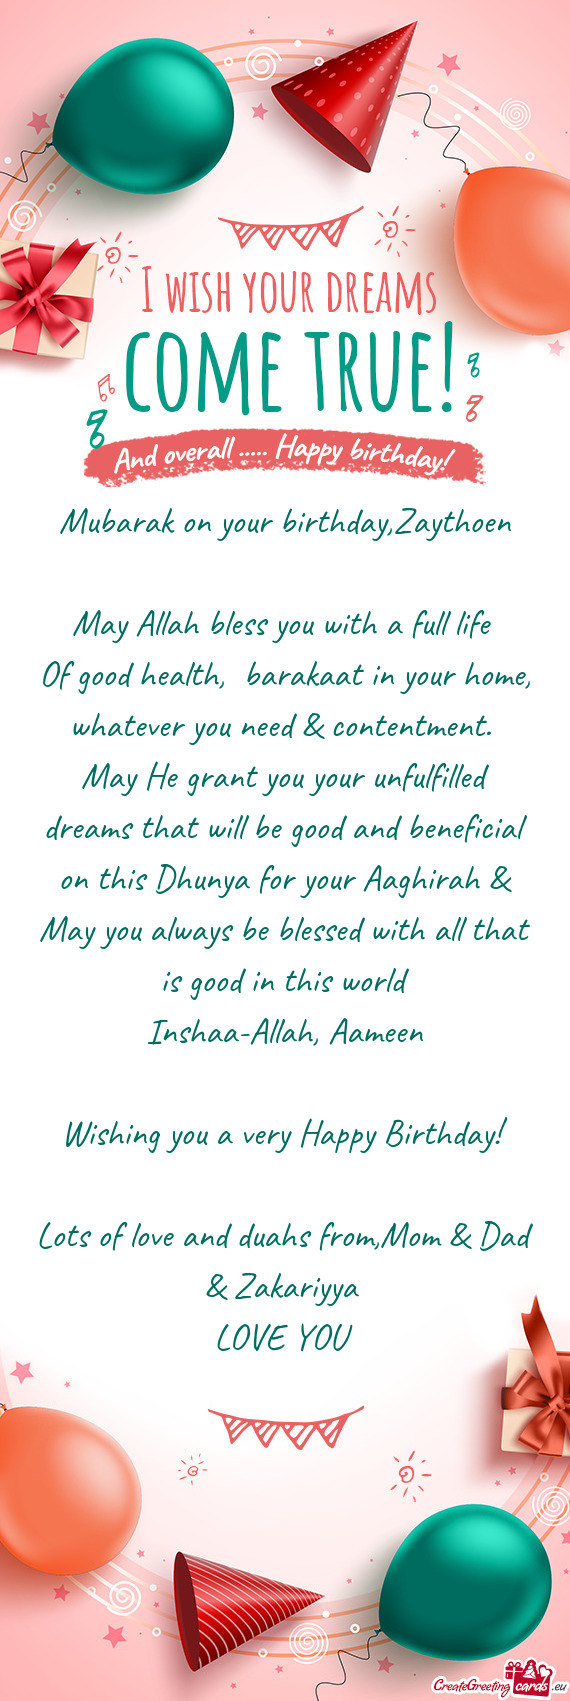 I WISH YOUR DREAMS
COME TRUE!
And overall ..... Happy birthday!
Mubarak on your birthday,Zaythoen
May Allah bless you with a full life
Of good health,  barakaat in your home,
whatever you need & contentment.
May He grant you your unfulfilled
dreams that will be good and beneficial
on this Dhunya for your Aaghirah &
May you always be blessed with all that
is good in this world
Inshaa-Allah, Aameen
Wishing you a very Happy Birthday!
Lots of love and duahs from,Mom & Dad
& Zakariyya
LOVE YOU
CreateGreetingcards.eu